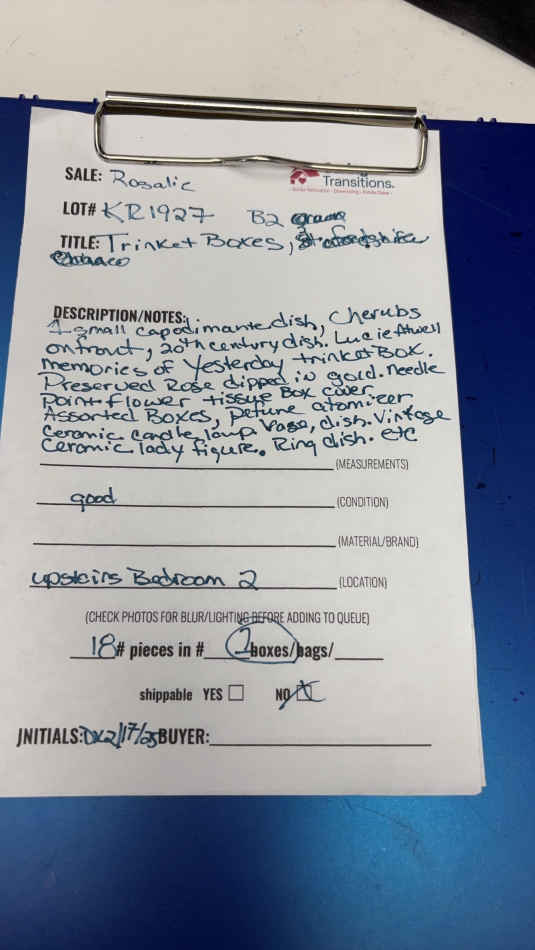 SALE: Rosalie
Transitions.
LOT# KR1927 B2
TITLE: Trinket Boxes, Stafordshire
DESCRIPTION/NOTES:
1 small capodimante dish, Cherubs
on front, 20th century dish. Lucie Atwell
memories of Yesterday trinket Box.
Preserved Rose dipped in gold. needle
point flower tissue Box cover
Assorted Boxes, pefume atomizer
Ceramic candle, lamp Vase, dish. Vintage
Ceramic lady figure. Ring dish. etc
(MEASUREMENTS)
good (CONDITION)
(MATERIAL/BRAND)
upstairs Bedroom 2 (LOCATION)
(CHECK PHOTOS FOR BLUR/LIGHTING BEFORE ADDING TO QUEUE)
18 # pieces in # 2 boxes/bags/
shippable YES NO X
INITIALS: DK 2/17/25 BUYER: